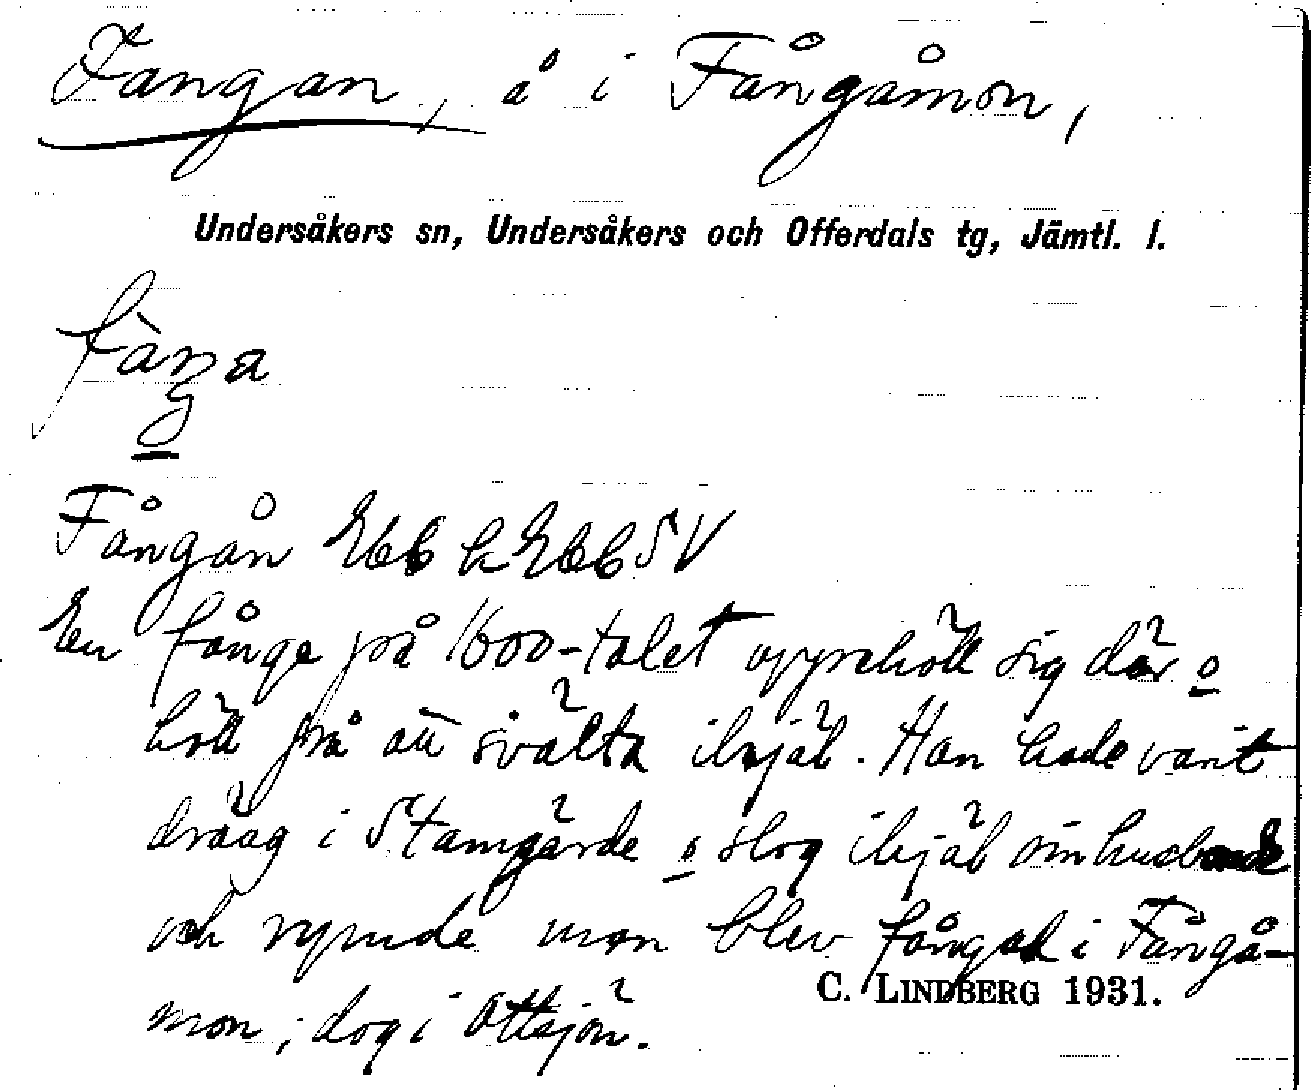 Fangan, å i Fångåmon,
Undersåkers sn, Undersåkers och Offerdals tg, Jämtl. l.
fàŋa
Fångån Ebb k Ebb SV
En fånge på 1600-talet uppehöll sig där o
höll på att svälta ihjäl. Han hade varit
dräng i Stamgärde o slog ihjäl sin husbonde
och rymde men blev fångad i Fångå-
mon, dog i Ottsjön.
C. LINDBERG 1931.